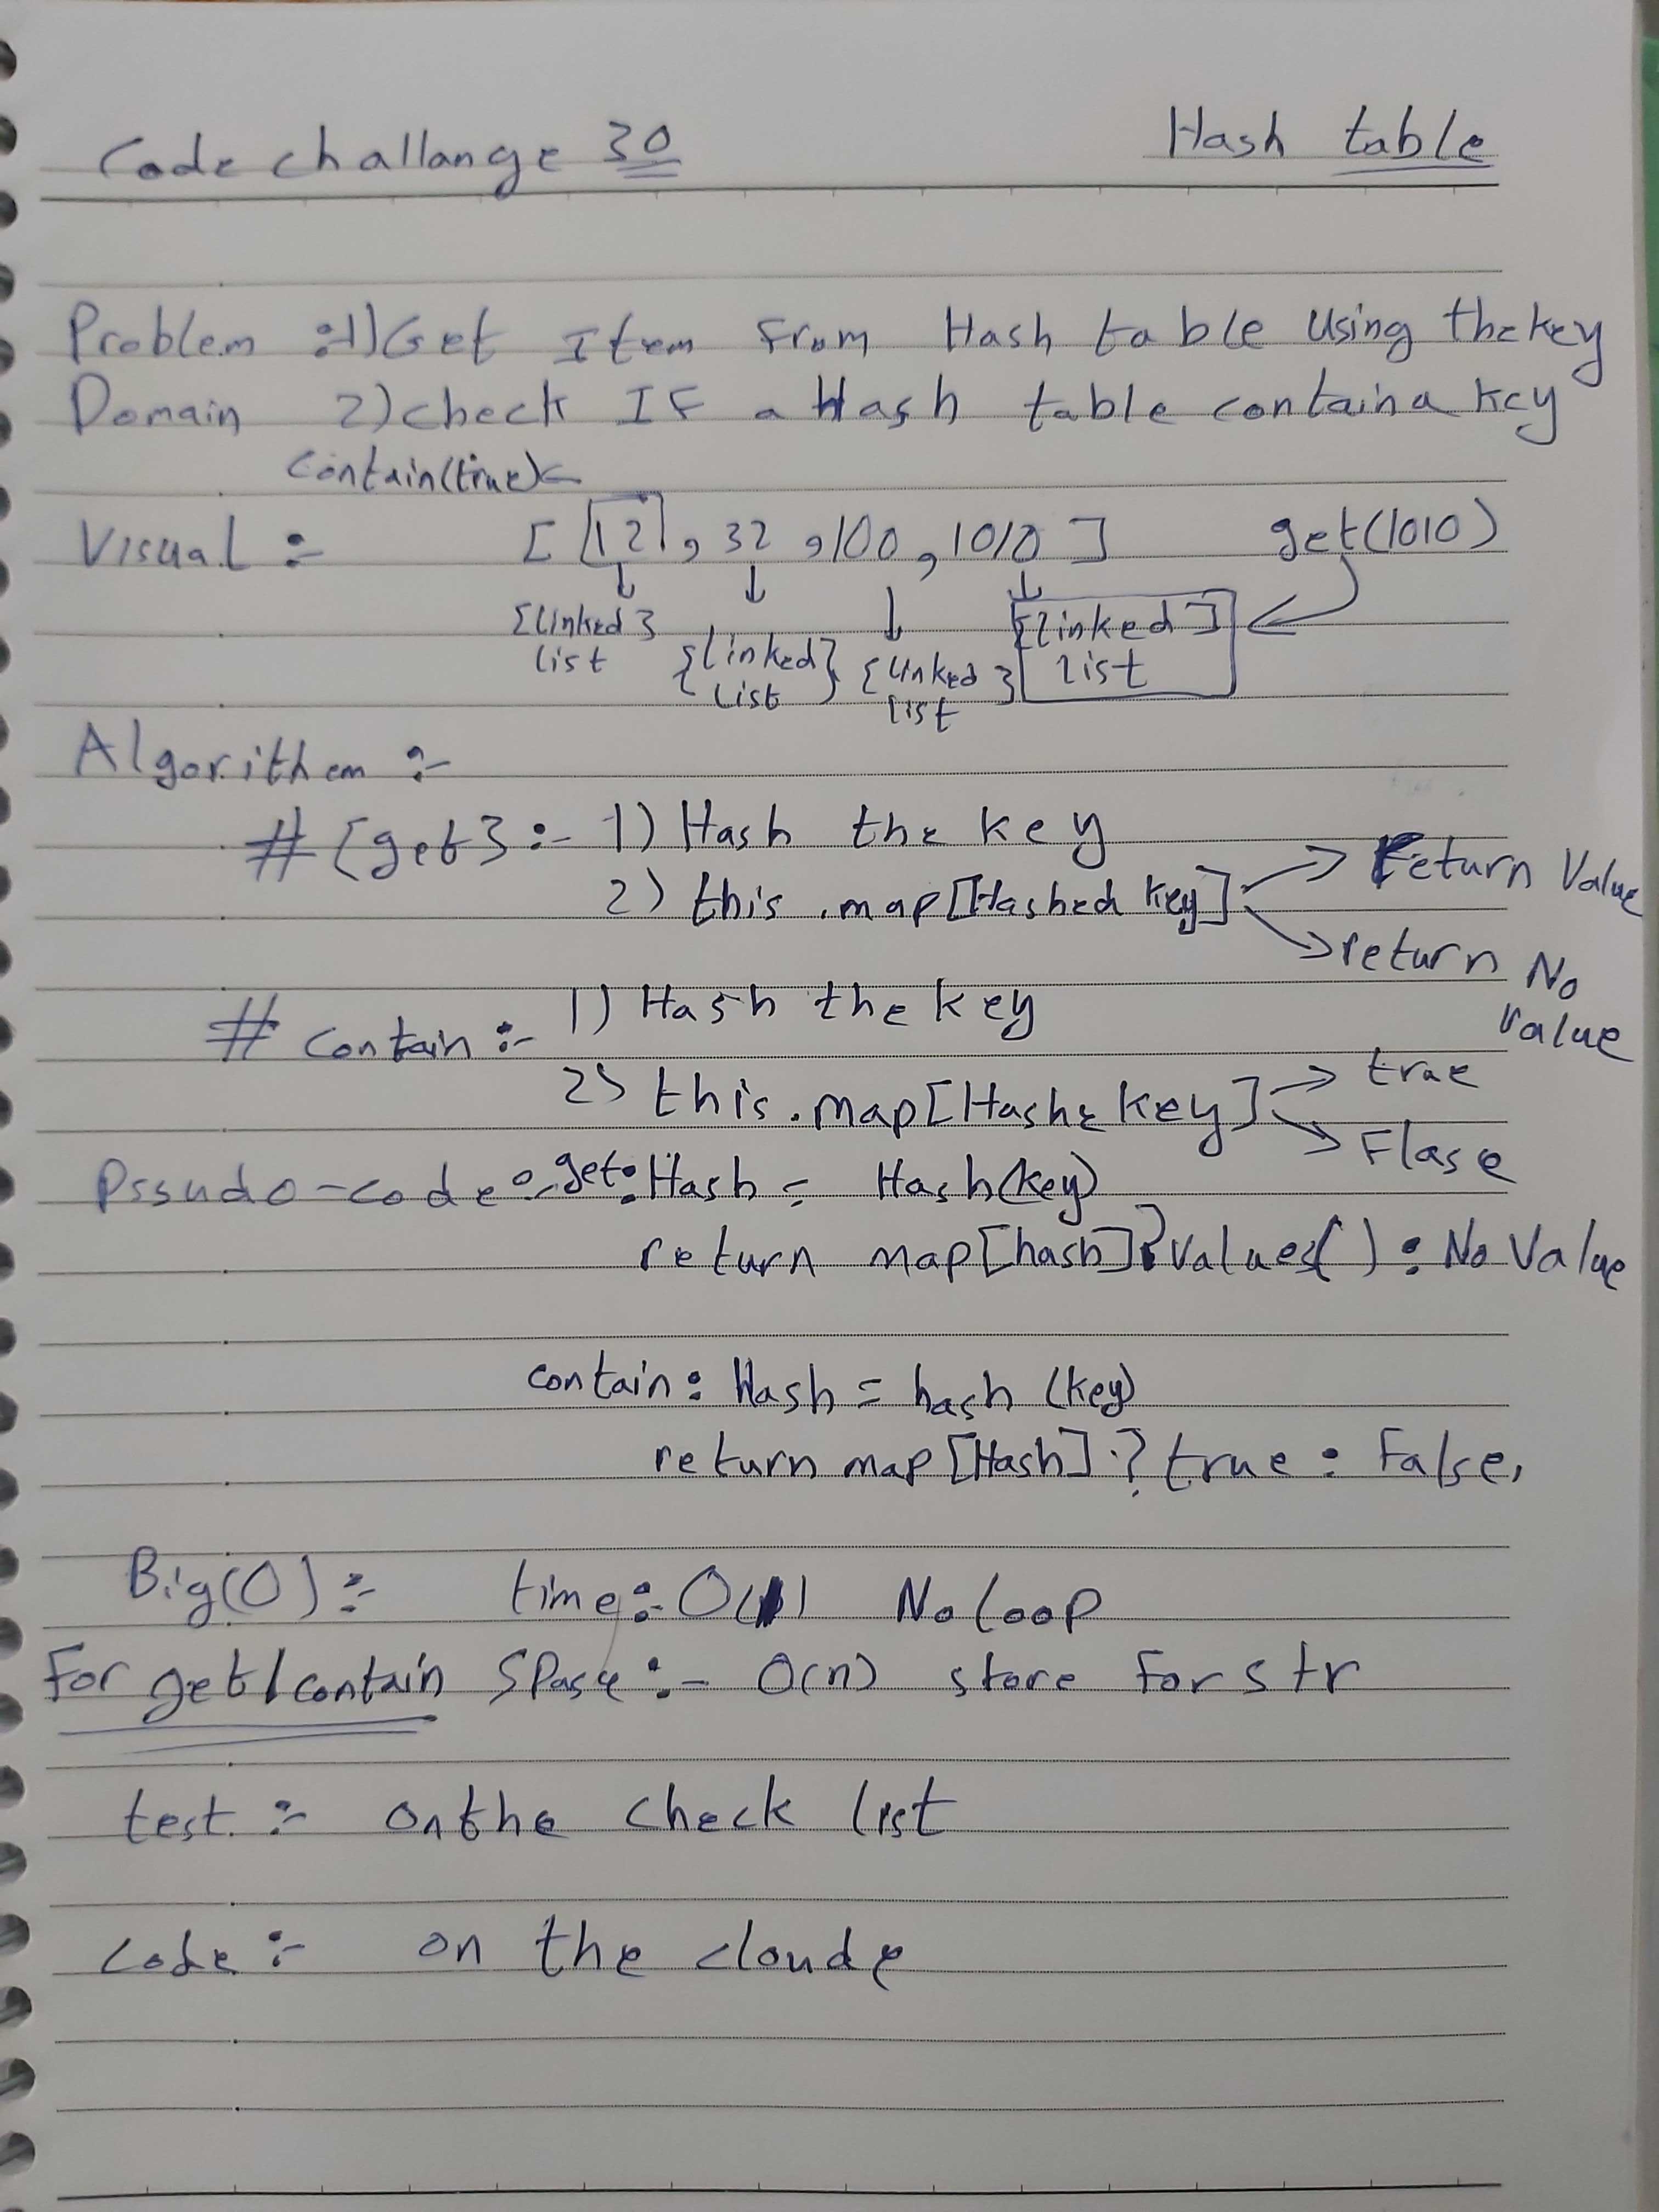 Code challange 30 Hash table
Problem :1) Get Item From Hash table Using the key
Domain 2) check IF a Hash table contain a key
contain(true)←
Visual :- [ [12], 32 ,100, 1010 ] get(1010)
↓ ↓ ↓ ↓
{linked} list {linked} list {linked} list {linked] list
Algorithem :-
# {get} :- 1) Hash the key
2) this .map[Hashed key] → return Value
→ return No Value
# contain :- 1) Hash the key
2) this.map[Hashe key] → true
→ Flase
Pssudo-code :- get: Hash = Hash(key)
return map[hash] ? Values() : No Value
contain: Hash = hash (key)
return map [Hash] ? true : False,
Big(O) :- time :- O(1) No loop
For get/contain SPase :- O(n) store For str
test :- on the check list
code :- on the cloude